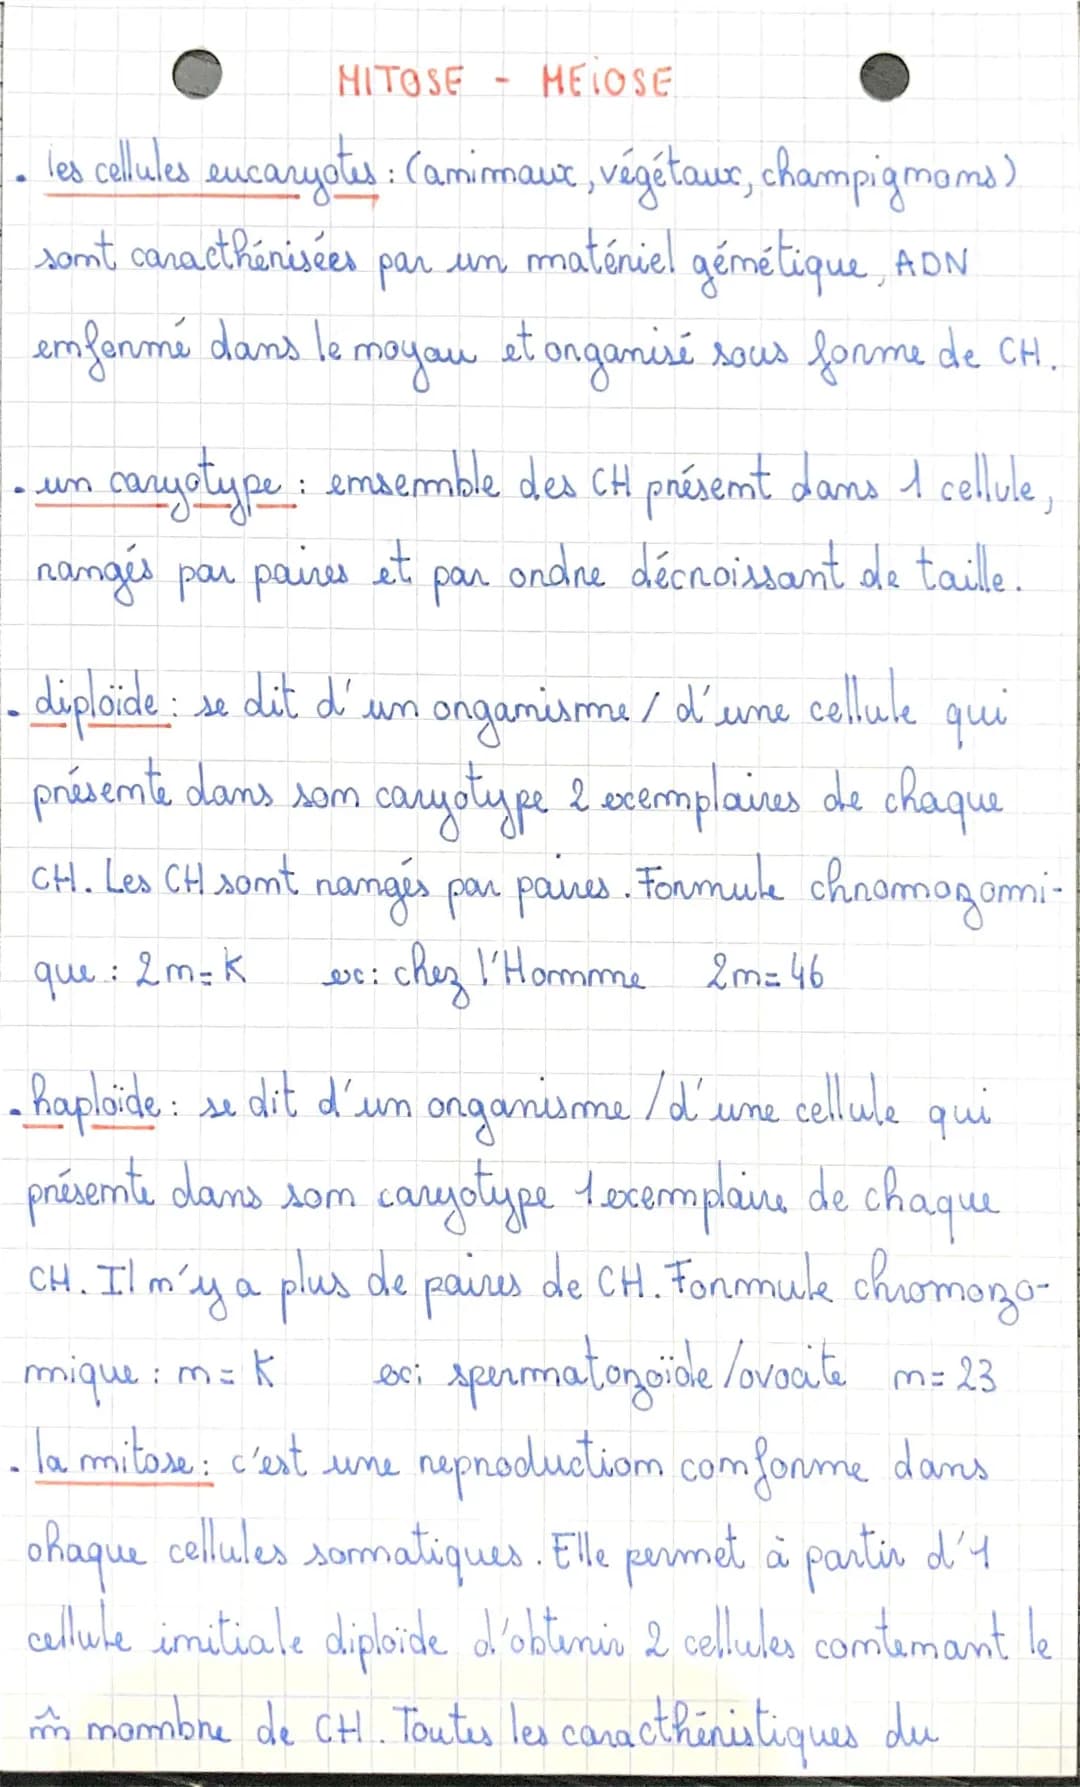 MITOSE - MEIOSE
. les cellules eucaryotes : (animaux, végétaux, champignons)
sont caracthérisées par un matériel génétique, ADN
enfermé dans le noyau et organisé sous forme de CH.
. un caryotype : ensemble des CH présent dans 1 cellule,
rangés par paires et par ordre décroissant de taille.
. diploïde : se dit d'un organisme / d'une cellule qui
présente dans son caryotype 2 exemplaires de chaque
CH. Les CH sont rangés par paires. Formule chromozomi-
que : 2n = K ex : chez l'Homme 2n = 46
. haploïde : se dit d'un organisme / d'une cellule qui
présente dans son caryotype 1 exemplaire de chaque
CH. Il n'y a plus de paires de CH. Formule chromozo-
mique : n = K ex : spermatozoïde / ovocite n = 23
. la mitose : c'est une reproduction conforme dans
chaque cellules somatiques. Elle permet à partir d'1
cellule initiale diploïde d'obtenir 2 cellules contenant le
m̂ nombre de CH. Toutes les caracthéristiques du